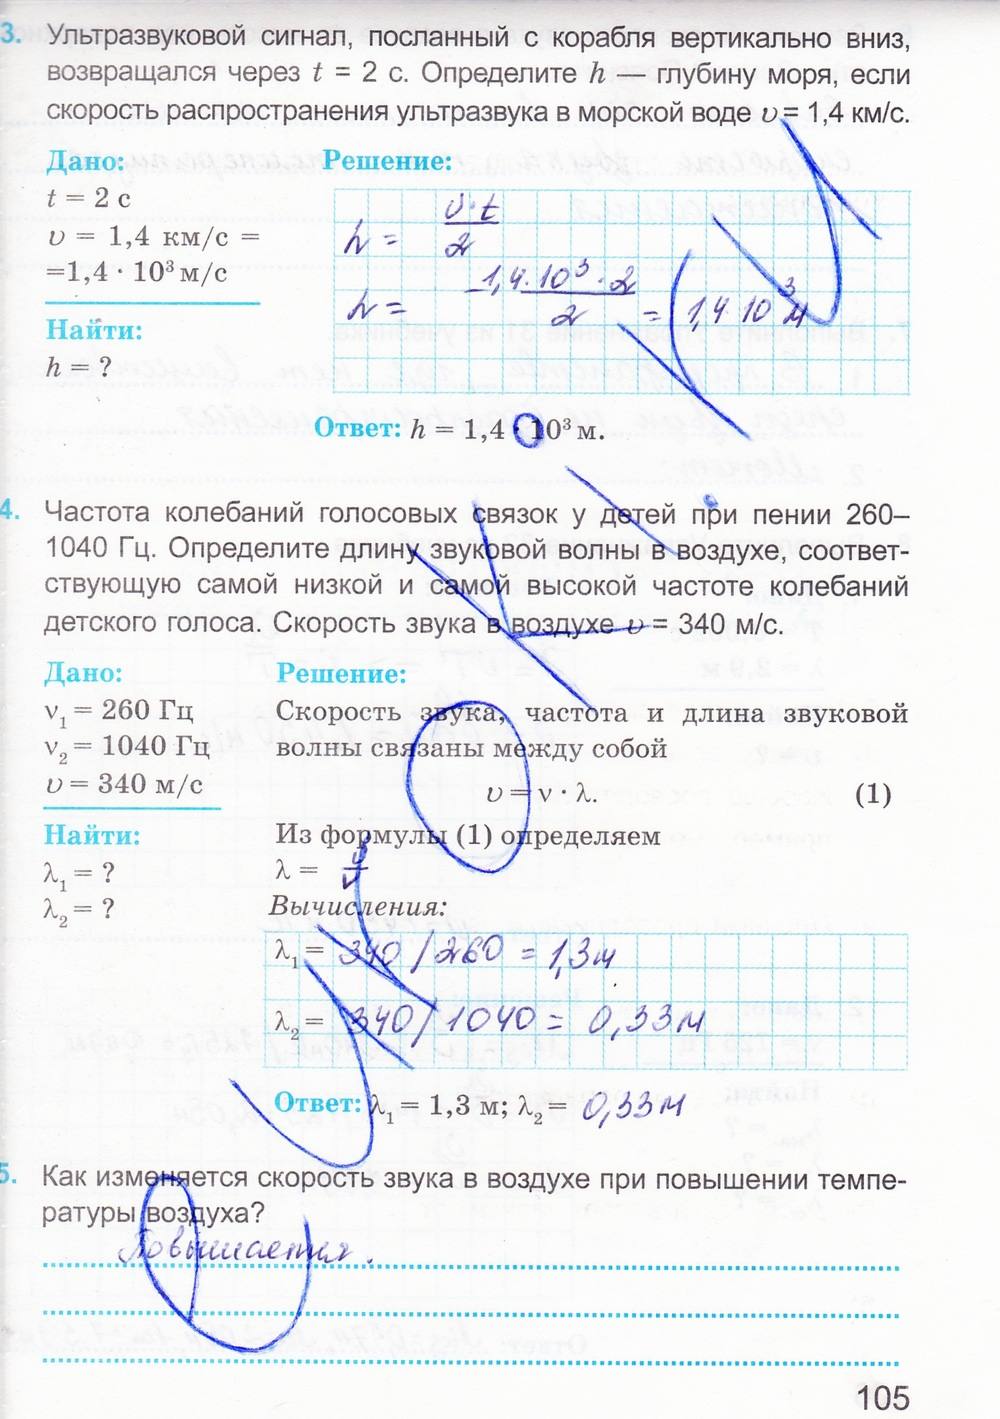 3. Ультразвуковой сигнал, посланный с корабля вертикально вниз,
возвращался через t = 2 с. Определите h — глубину моря, если
скорость распространения ультразвука в морской воде υ = 1,4 км/с.
Дано: Решение:
t = 2 с
υ = 1,4 км/с =
=1,4 · 10³ м/с
Найти:
h = ?
h = υ·t / 2
h = 1,4·10³·2 / 2 = 1,4 10³ м
Ответ: h = 1,4 · 10³ м.
4. Частота колебаний голосовых связок у детей при пении 260–
1040 Гц. Определите длину звуковой волны в воздухе, соответ-
ствующую самой низкой и самой высокой частоте колебаний
детского голоса. Скорость звука в воздухе υ = 340 м/с.
Дано: Решение:
ν₁ = 260 Гц
ν₂ = 1040 Гц
υ = 340 м/с
Найти:
λ₁ = ?
λ₂ = ?
Скорость звука, частота и длина звуковой
волны связаны между собой
υ = ν · λ. (1)
Из формулы (1) определяем
λ = υ/ν
Вычисления:
λ₁ = 340/260 = 1,3 м
λ₂ = 340/1040 = 0,33 м
Ответ: λ₁ = 1,3 м; λ₂ = 0,33 м
5. Как изменяется скорость звука в воздухе при повышении темпе-
ратуры воздуха?
Повышается.
105